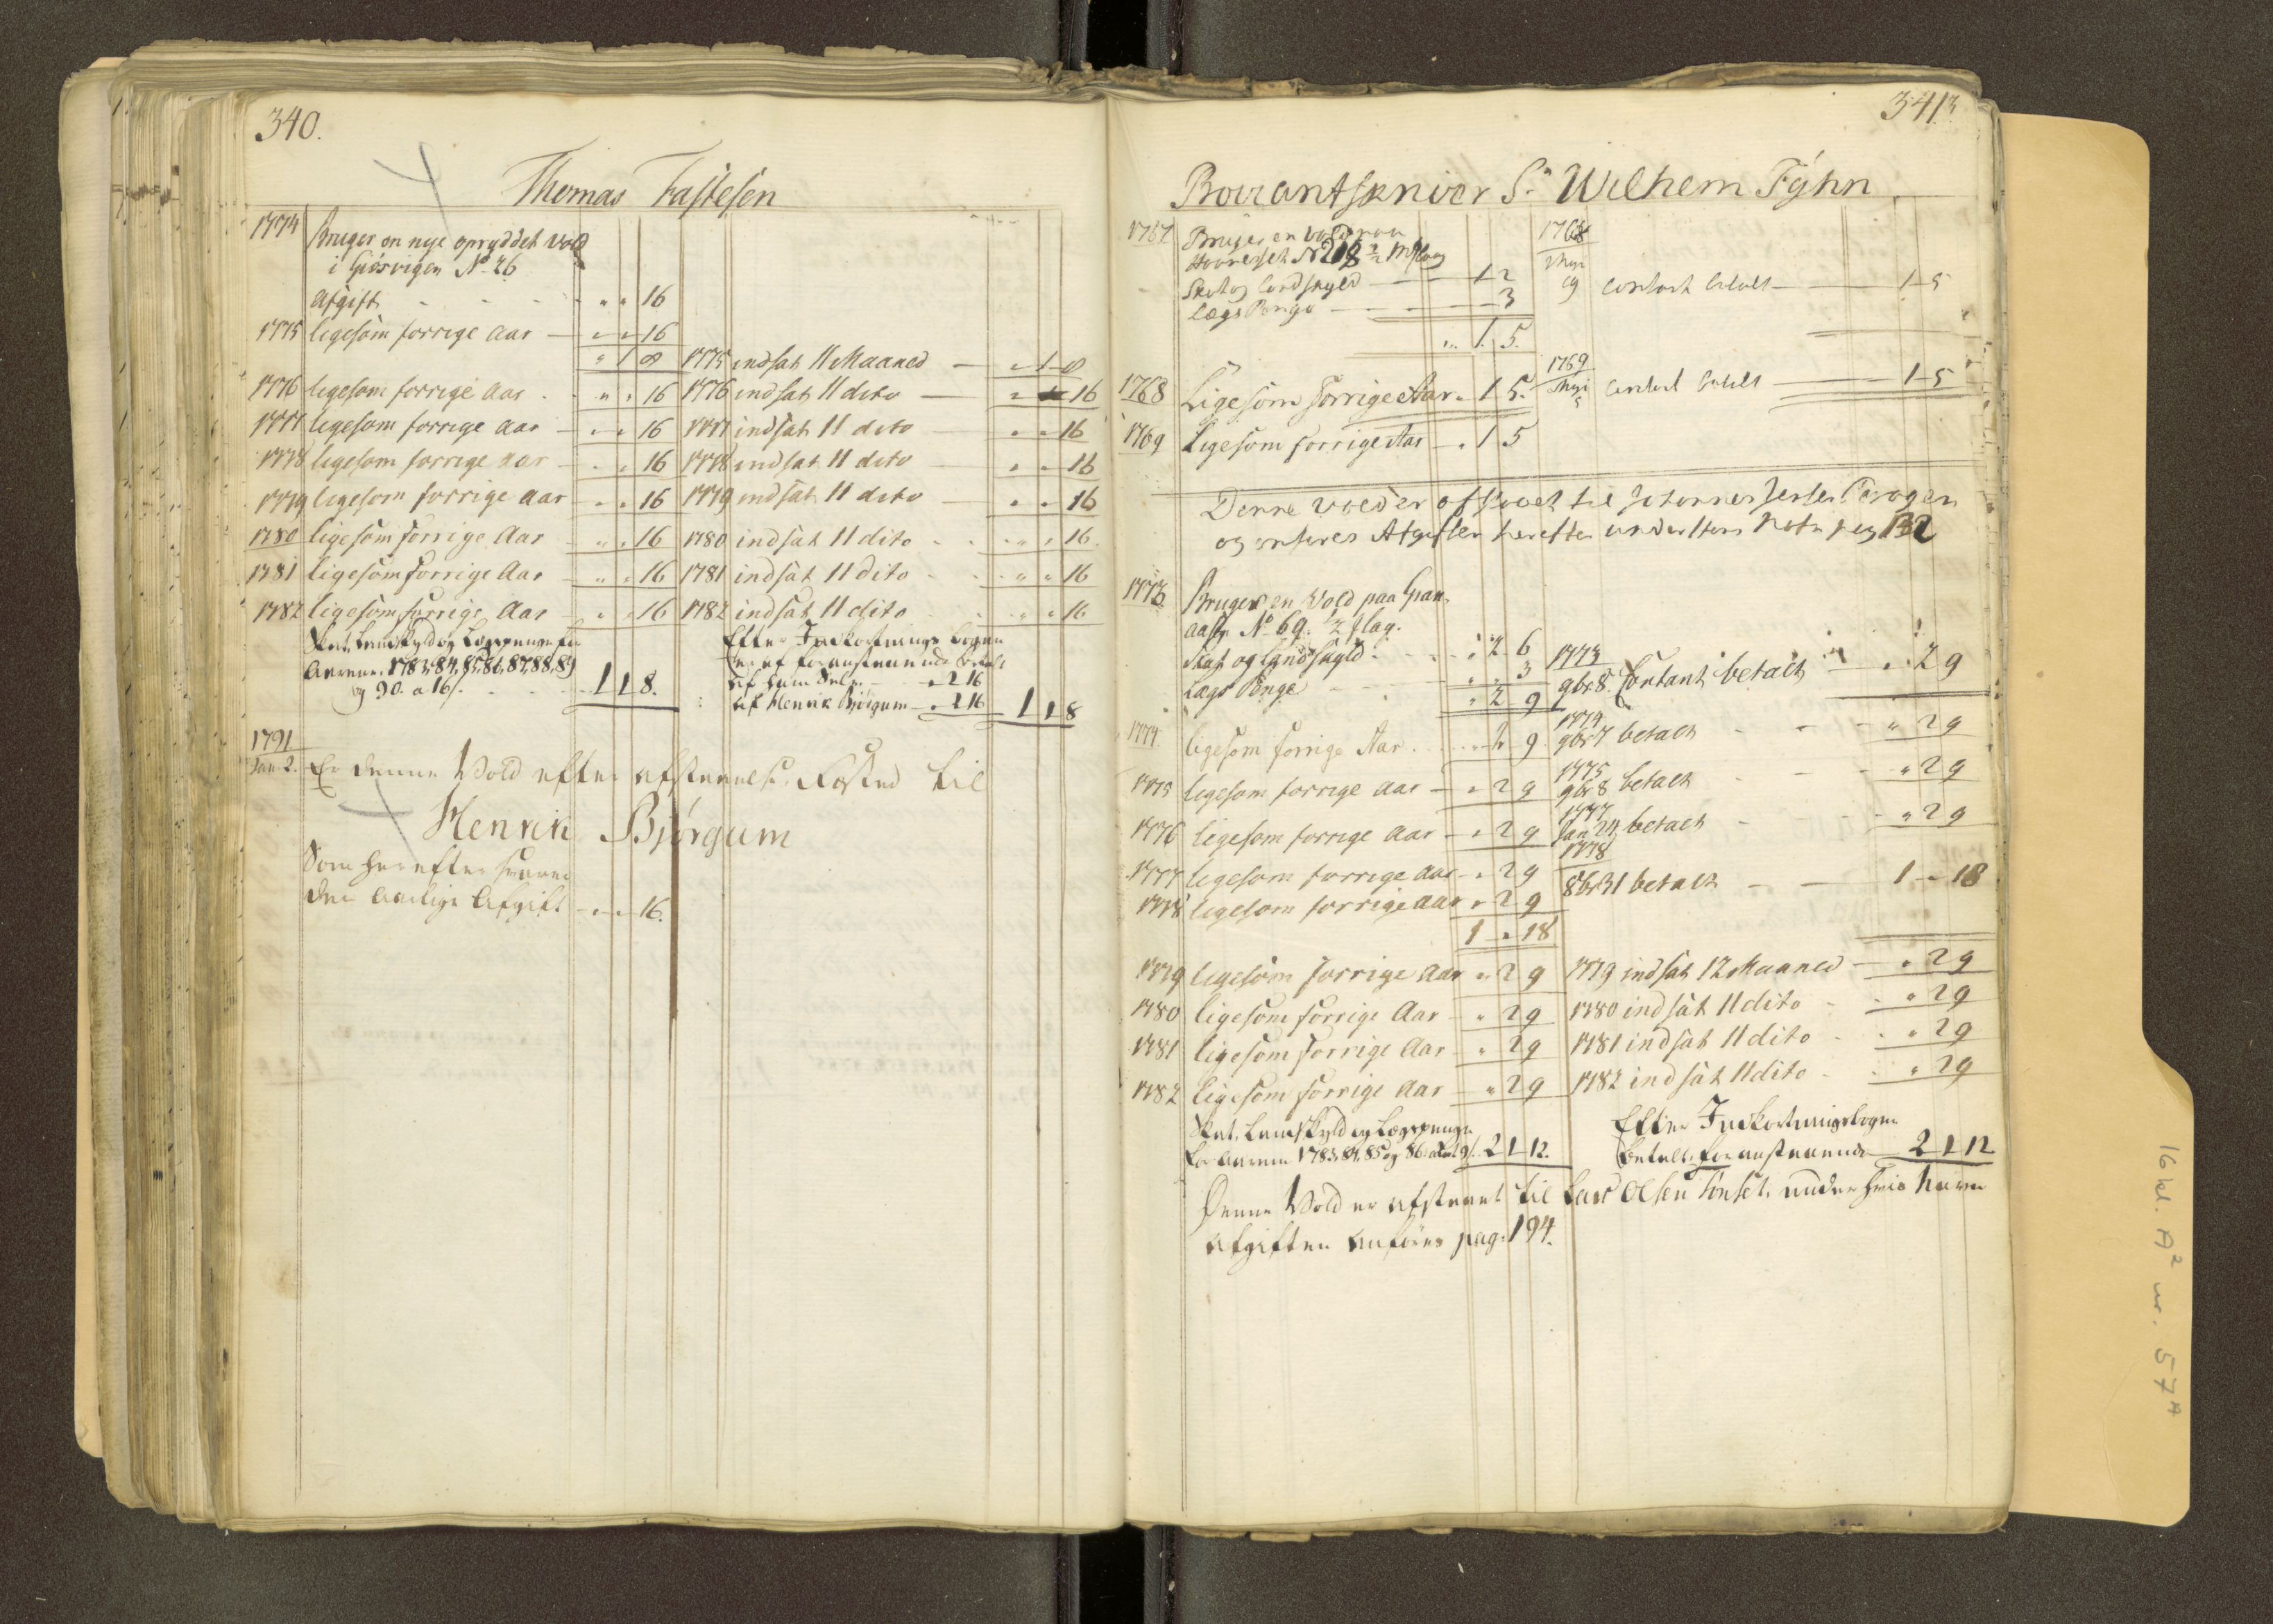 340.
Thomas Fastesen
1774 Bruger en nye opryddet Vold
i Giörvigen No 26
Afgift - - - " " 16
1775 ligesom forrige Aar — " " 16
" 1 8 1775 indsat 11 Maaned — " 1 8
1776 ligesom forrige Aar - " " 16 1776 indsat 11 dito — " 16
1777 ligesom forrige Aar - " " 16 1777 indsat 11 dito — " " 16
1778 ligesom forrige Aar - " " 16 1778 indsat 11 dito — " " 16
1779 ligesom forrige Aar - " " 16 1779 indsat 11 dito — " " 16
1780 ligesom forrige Aar - " " 16 1780 indsat 11 dito - " " 16
1781 ligesom forrige Aar - " " 16 1781 indsat 11 dito - " " 16
1782 ligesom forrige Aar - " " 16 1782 indsat 11 dito - " " 16
Skat, Landskyld og Lægspenge for
Aarene 1783, 84, 85, 86, 87, 88, 89
og 90. a 16 s. - - - 1 1 8.
Efter Indkortnings Bogen
er af foranstaaende betalt
af ham Selv - " 2 16
af Henrik Björgum - " 2 16 1 1 8
1791
Jan 2. Er denne Vold efter afstaaelse fæsted til
Henrik Björgum
Som herefter svarer
den aarlige Afgift - " " 16.
341
Wilhem Fÿhn
1767 Bruger en Vold paa
Skat og Landskyld — 1 2
Lægs Penge — 3
" 1. 5.
1768
contant betalt — 1 5
1768 Ligesom forrige Aar " 1 5.
1769
contant betalt — 1 5
1769 Ligesom forrige Aar - " 1 5
Denne Vold er
og anföres Afgiften herefter under hans Nafn pag 132
1773 Bruger en Vold paa Gran
aasen No 69. ½ slag.
Skat og Landskyld - - " 2 6
Lægs Penge - - " " 3
" 2 9
1773
9br 8. Contant betalt - " 2 9
1774 ligesom forrige Aar - - " 2 9
1774
9br 7 betalt - - - " 2 9
1775 ligesom forrige Aar — " 2 9
1775
9br 8 betalt - - - " 2 9
1776 ligesom forrige Aar — " 2 9
1777
Jan 24 betalt - - - " 2 9
1777 ligesom forrige Aar — " 2 9
1778 ligesom forrige Aar " 2 9
1778
8br 31 betalt - — 1 " 18
1 " 18
1779 ligesom forrige Aar " 2 9 1779 indsat 12 Maaned — " 2 9
1780 ligesom forrige Aar - " 2 9 1780 indsat 11 dito - " 2 9
1781 ligesom forrige Aar - " 2 9 1781 indsat 11 dito - " 2 9
1782 ligesom forrige Aar - " 2 9 1782 indsat 11 dito - " 2 9
Skat, Landskyld og Lægspenge
for Aarene 1783, 84, 85 og 86 2 1 12.
Efter Indkortningsbogen
betalt foranstaaende 2 1 12
Denne Vold er afstaaet til Lars Olsen Tinset, under hvis Navn
afgiften anföres pag. 194.
16 kl. A² nr. 57A